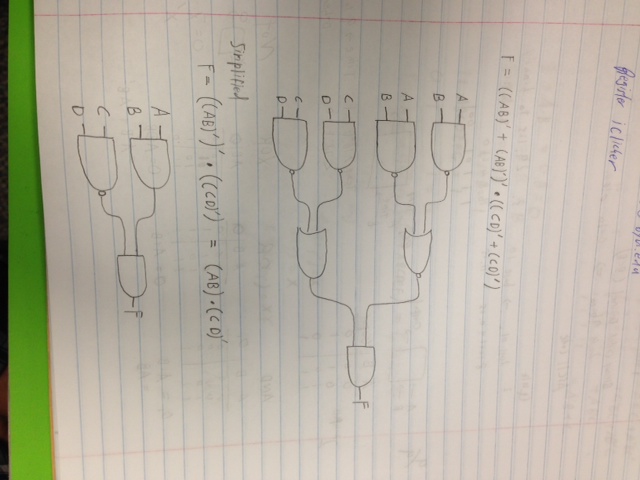 Register iClicker
F = ((AB)' + (AB)')' • ((CD)' + (CD)')
A
B
A
B
C
D
C
D
F
Simplified
F = ((AB)')' • ((CD)') = (AB)•(CD)'
A
B
C
D
F